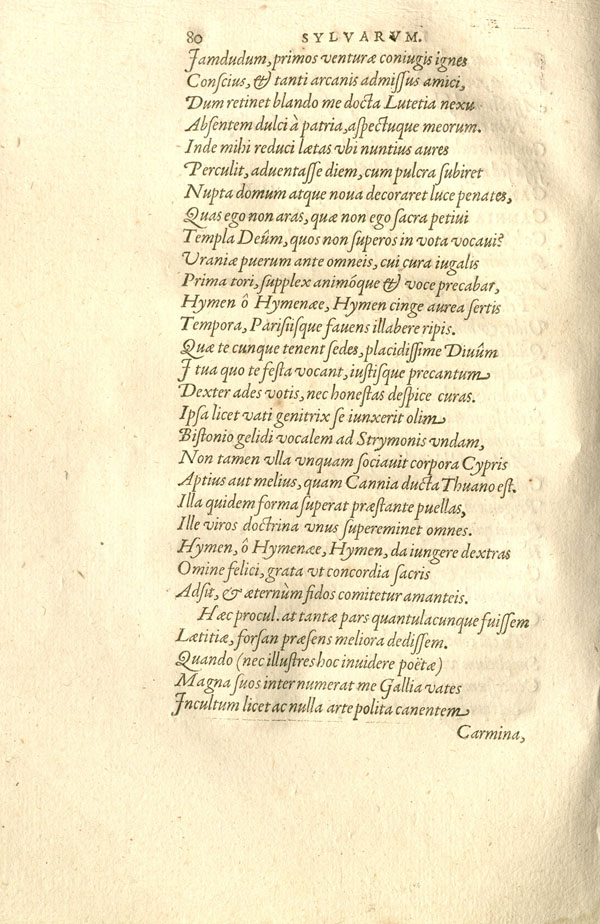 80 SYLVARVM.
Jamdudum, primos venturæ coniugis ignes
Conſcius, & tanti arcanis admiſſus amici,
Dum retinet blando me docta Lutetia nexu
Abſentem dulci à patria, aſpectuque meorum.
Inde mihi reduci lætas vbi nuntius aures
Perculit, aduentaſſe diem, cum pulcra ſubiret
Nupta domum atque noua decoraret luce penates,
Quas ego non aras, quæ non ego ſacra petiui
Templa Deûm, quos non ſuperos in vota vocaui?
Vraniæ puerum ante omneis, cui cura iugalis
Prima tori, ſupplex animóque & voce precabar,
Hymen ô Hymenæe, Hymen cinge aurea ſertis
Tempora, Pariſiiſque fauens illabere ripis.
Quæ te cunque tenent ſedes, placidiſſime Diuûm
I tua quo te feſta vocant, iuſtiſque precantum
Dexter ades votis, nec honeſtas deſpice curas.
Ipſa licet vati genitrix ſe iunxerit olim
Biſtonio gelidi vocalem ad Strymonis vndam,
Non tamen vlla vnquam ſociauit corpora Cypris
Aptius aut melius, quam Cannia ducta Thuano eſt.
Illa quidem forma ſuperat præſtante puellas,
Ille viros doctrina vnus ſupereminet omnes.
Hymen, ô Hymenæe, Hymen, da iungere dextras
Omine felici, grata vt concordia ſacris
Adſit, & æternùm fidos comitetur amanteis.
Hæc procul. at tantæ pars quantulacunque fuiſſem
Lætitiæ, forſan præſens meliora dediſſem.
Quando (nec illuſtres hoc inuidere poëtæ)
Magna ſuos inter numerat me Gallia vates
Incultum licet ac nulla arte polita canentem
Carmina,